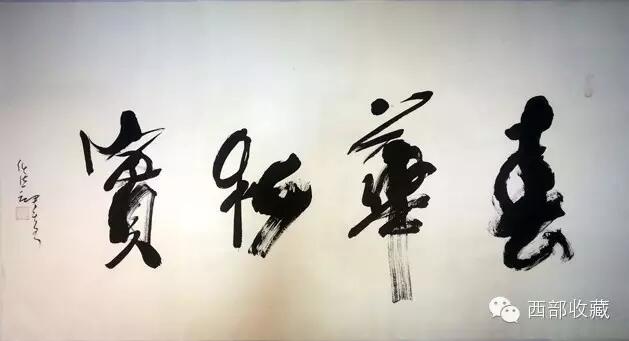 春華秋實
西部收藏